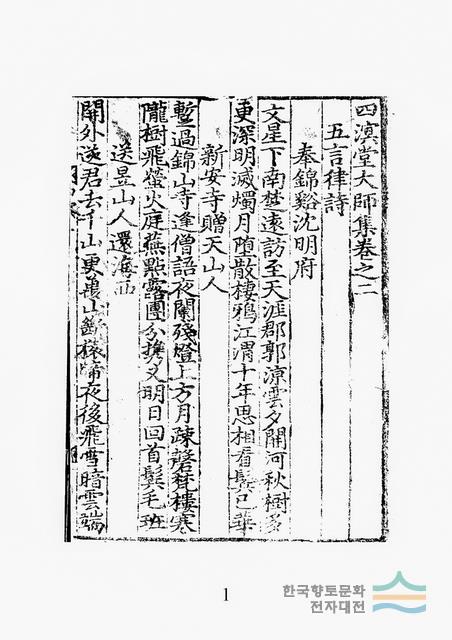 四溟堂大師集卷之二
五言律詩
奉錦谿沈明府
文星下南楚遠訪至天涯郡郭涼雲夕關河秋樹多
更深明滅燭月墮散棲鴉江渭十年思相看鬢已華
新安寺贈天山人
暫過錦山寺逢僧語夜闌殘燈上方月疎磬梵樓寒
隴樹飛螢火庭蕪點露團分携又明日回首鬢毛班
送昱山人還海西
關外送君去千山更萬山斷猿啼夜後飛雪暗雲端
1
한국향토문화
전자대전